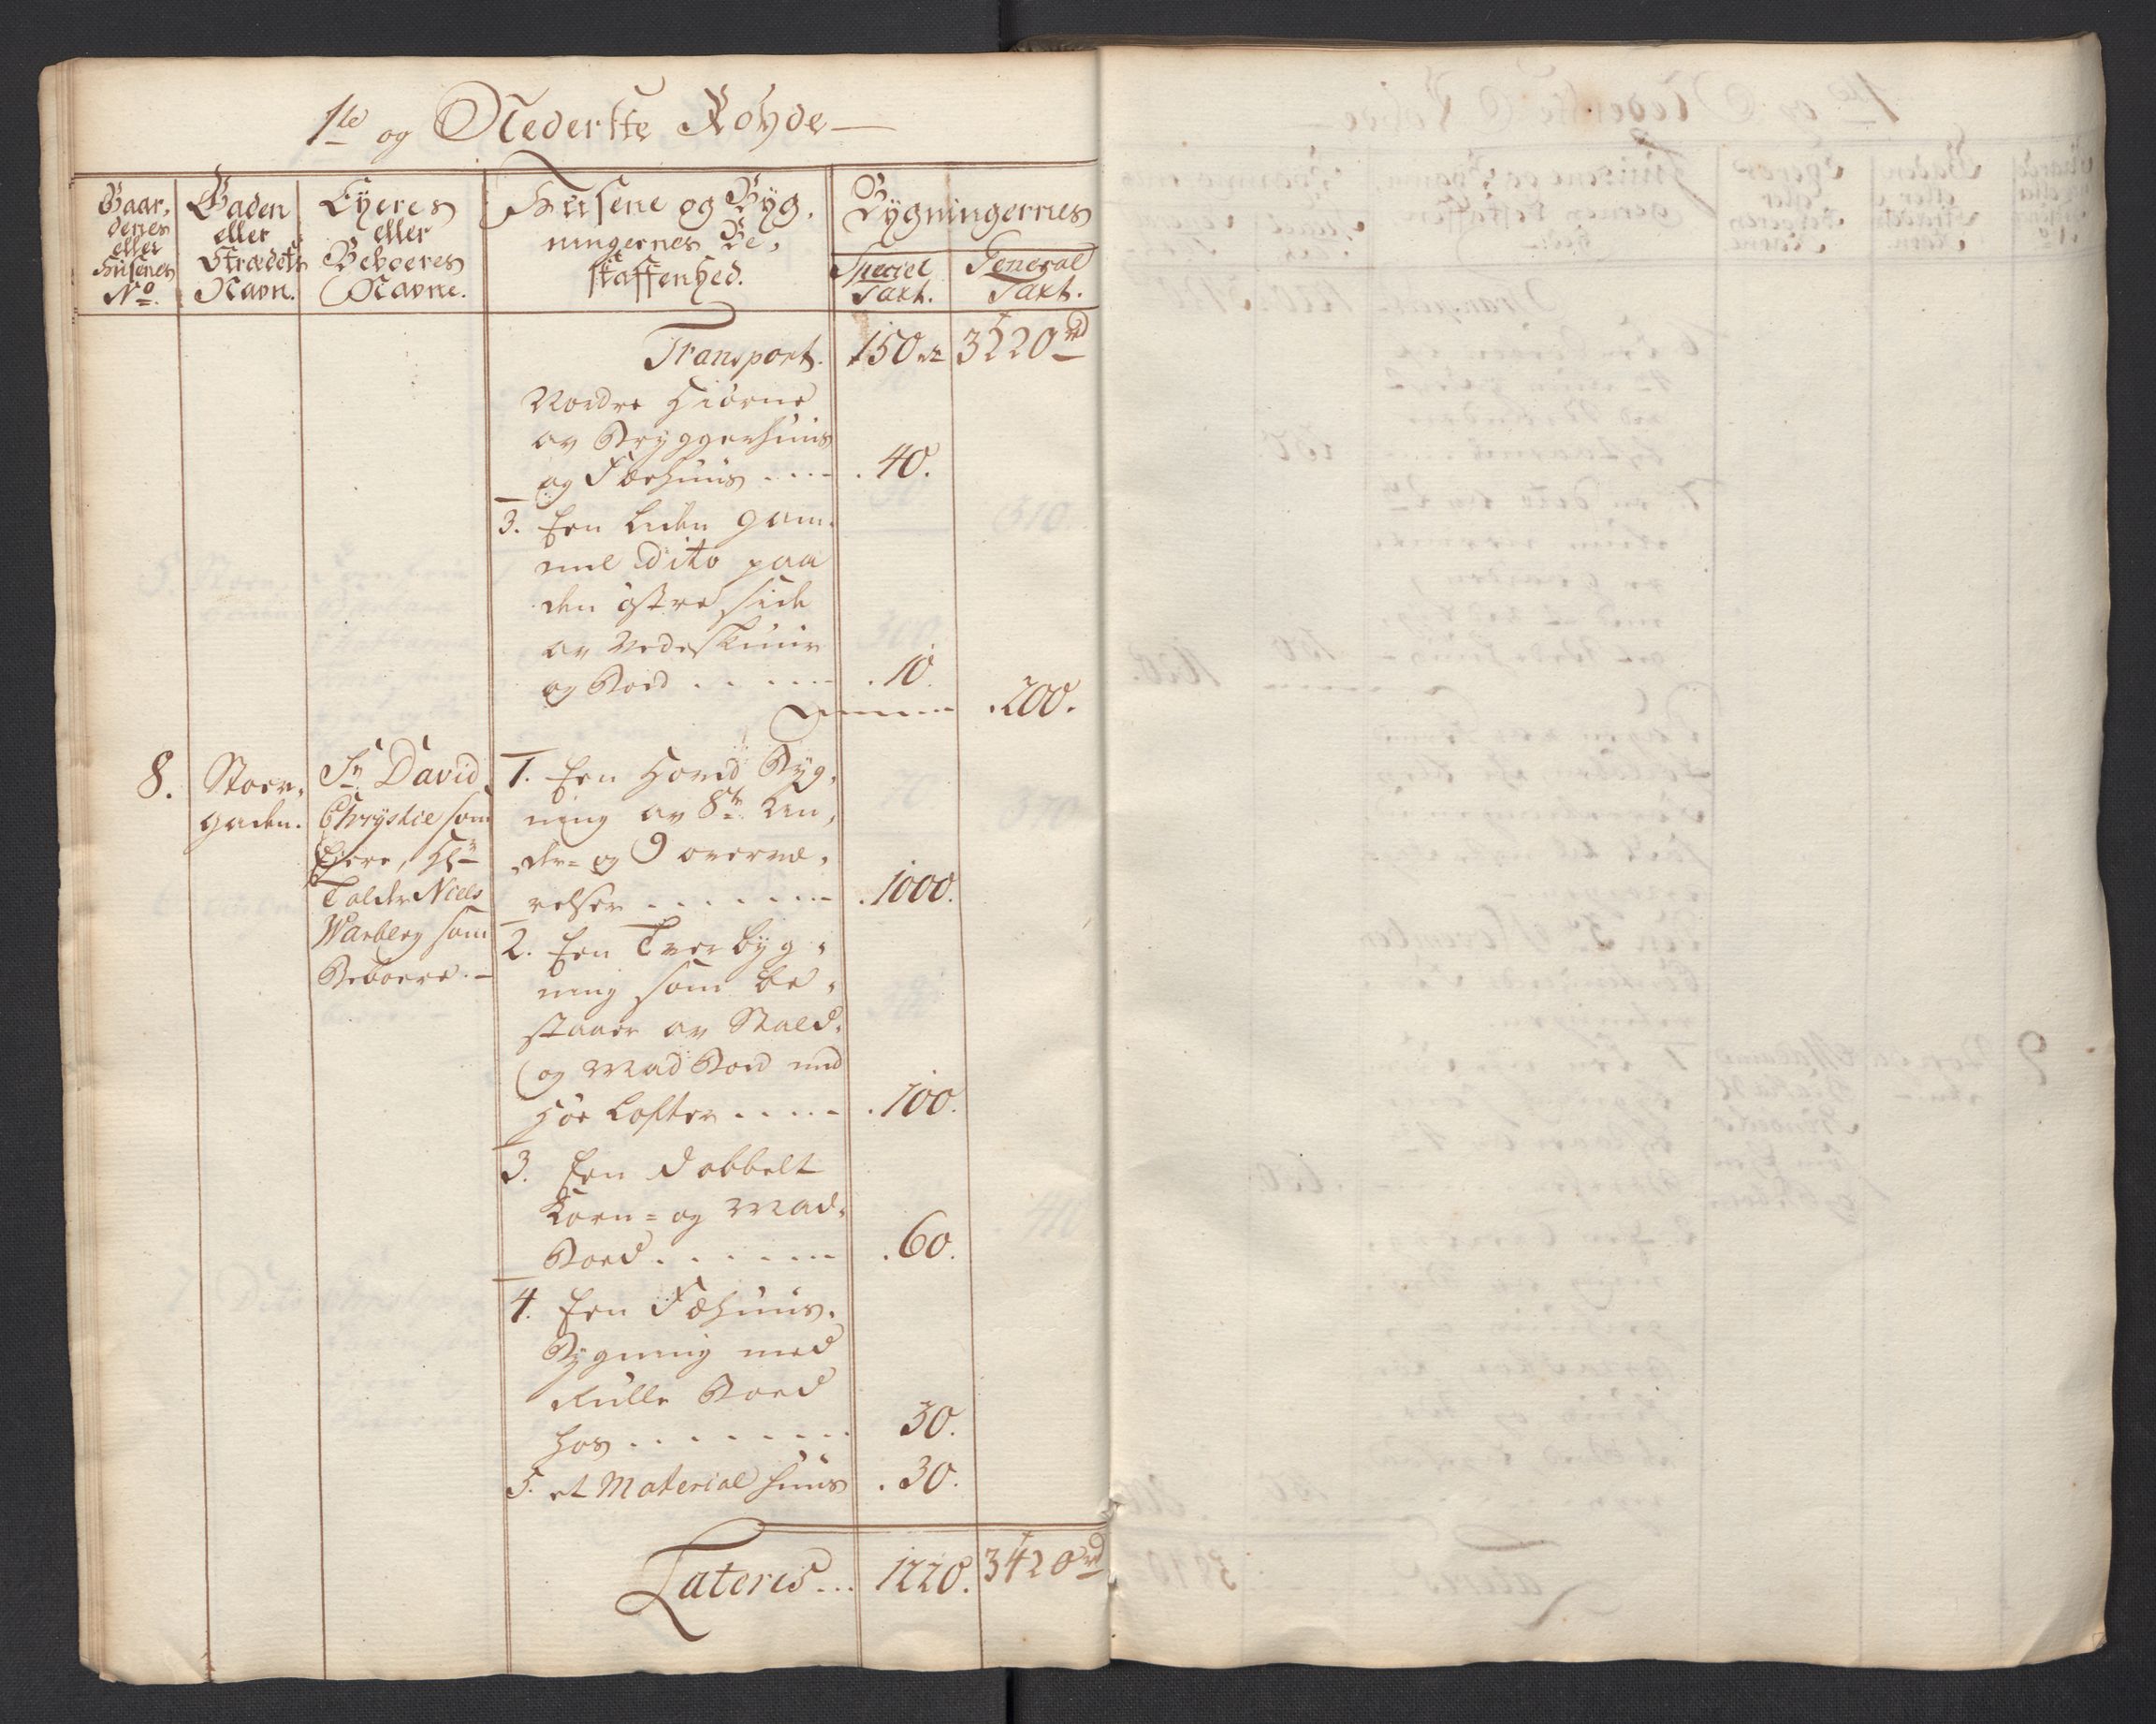 1te og Nederste Røyde
Gaardenes eller Husenes No.
Gaden eller Strædets Navn.
Eyeres eller Beboeres Navne.
Husene og Bygningernes Beskaffenhed.
Bygningernes
Speciel Taxt.
General Taxt.
Transport. 150 rd 3220 rd
Nordre Hiørne
av Bryggerhuus
og Fæehuus .... 40.
3. Een liden gam,
mel dito paa
den østre side
av Vedeskuur
og Boed ...... 10.
200.
8. Stoer, gaden.
Sr. David
Chrystie som
Ejere, Hr
Tolder Niels
Warberg som
Beboere.
1. Een Hoved Byg,
ning av 8te un,
der- og 9 overvæ,
relser ....... 1000.
2. Een Tverbyg,
ning som be,
staaer av Stald,
og Mad Boed med
Høe Lofter ..... 100.
3. Een dobbelt
Korn- og Mad,
Boed ...... 60.
4. Een Fæhuus,
Bygning med
Rulle Boed
hos ........ 30.
5. et Material huus . 30.
Lateris... 1220. 3420 rd